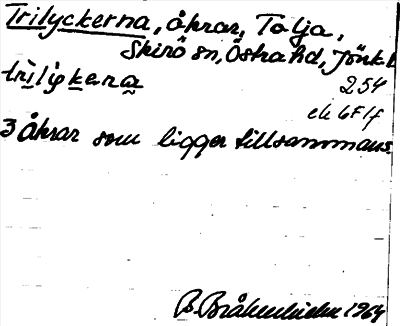 Trilyckerna, åkrar, Tälja,
Skirö sn, Östra hd, Jönk l
trilykena
254
ek 6F1f
3 åkrar som ligger tillsammans.
B. Bråkenhielm 1964